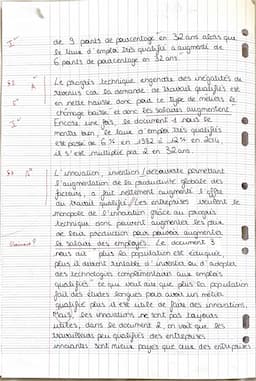 de 9 points de pourcentage en 32 ans alors que
le taux d'emploi très qualifié a augmenté de
6 points de pourcentage en 32 ans.
Le progrès technique engendre des inégalités de
revenus car la demande de travail qualifiés est
en nette hausse donc pour ce type de métiers le
chômage baisse et donc les salaires augmentent
Encore une fois, le document 1 nous le
montre bien, le taux d'emploi très qualifiés
est passé de 6% en 1982 à 12% en 2014,
il s'est multiplié par 2 en 32 ans.
L'innovation, invention / découverte permettant
l'augmentation de la productivité globale des
facteurs, a fait nettement augmenté l'offre
au travail qualifié. Les entreprises veulent le
monopole de l'innovation grâce au progrès
technique donc peuvent augmenter les
de leur production pour pouvoir augmenter
le salaire des employés. Le document 3
nous dit plus la population est éduquée
plus il devient rentable d'inventer ou d'adopter
des technologies complémentaires aux emplois
qualifiés" ce qui veut dire que plus la population
fait des études longues pour avoir un métier
qualifié plus il est utile de faire des innovations.
Mais, les innovations ne sont pas toujours
utiles, dans le document 2, on voit que les
travailleurs peu qualifiés des entreprises
innovantes sont mieux payés que ceux des entreprises